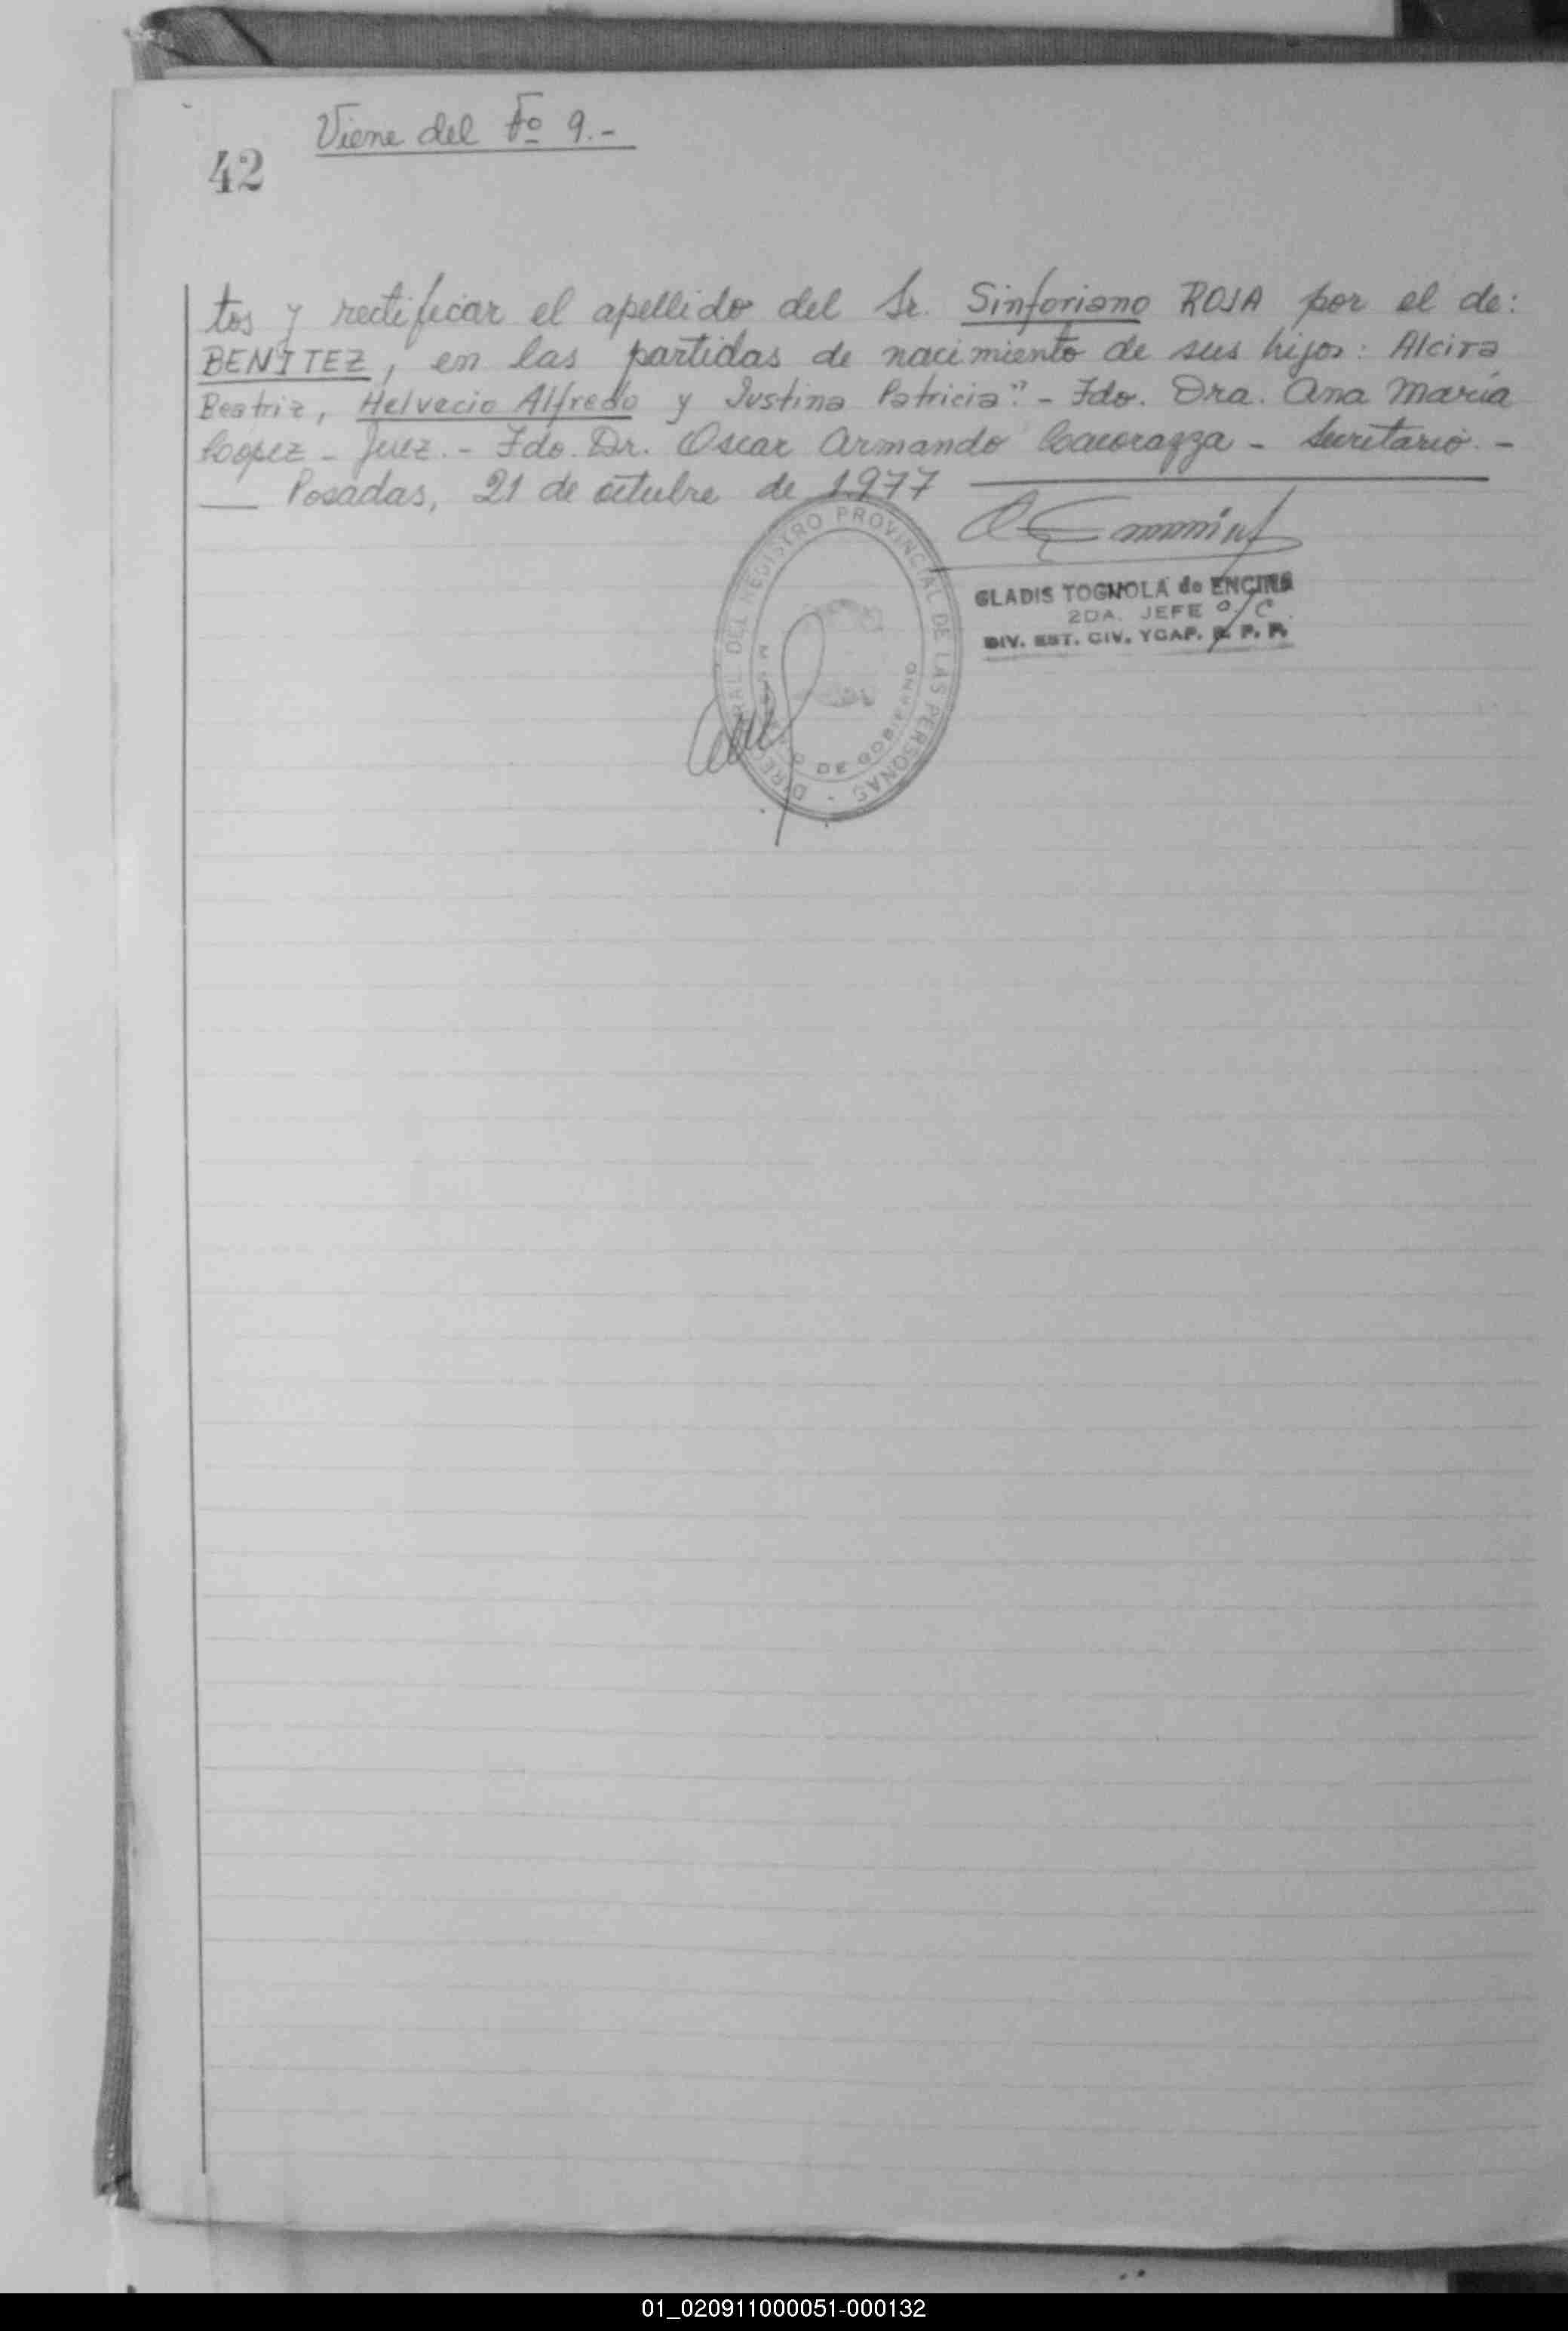 Viene del Fº 9.-
42
tos y rectificar el apellido del Sr. Sinforiano ROSA por el de:
BENITEZ, en las partidas de nacimiento de sus hijos: Alcira
Beatriz, Helvecio Alfredo y Justina Patricia".- Fdo. Dra. Ana María
Lopez - Juez.- Fdo. Dr. Oscar Armando - Secretario.-
Posadas, 21 de octubre de 1977
GLADIS TOGNOLA de ENCINA
2DA. JEFE a/c
DIV. EST. CIV. YCAP. R. P. P.
DIRECCION GENERAL DEL REGISTRO PROVINCIAL DE LAS PERSONAS -
MINISTERIO DE GOBIERNO
01_020911000051-000132